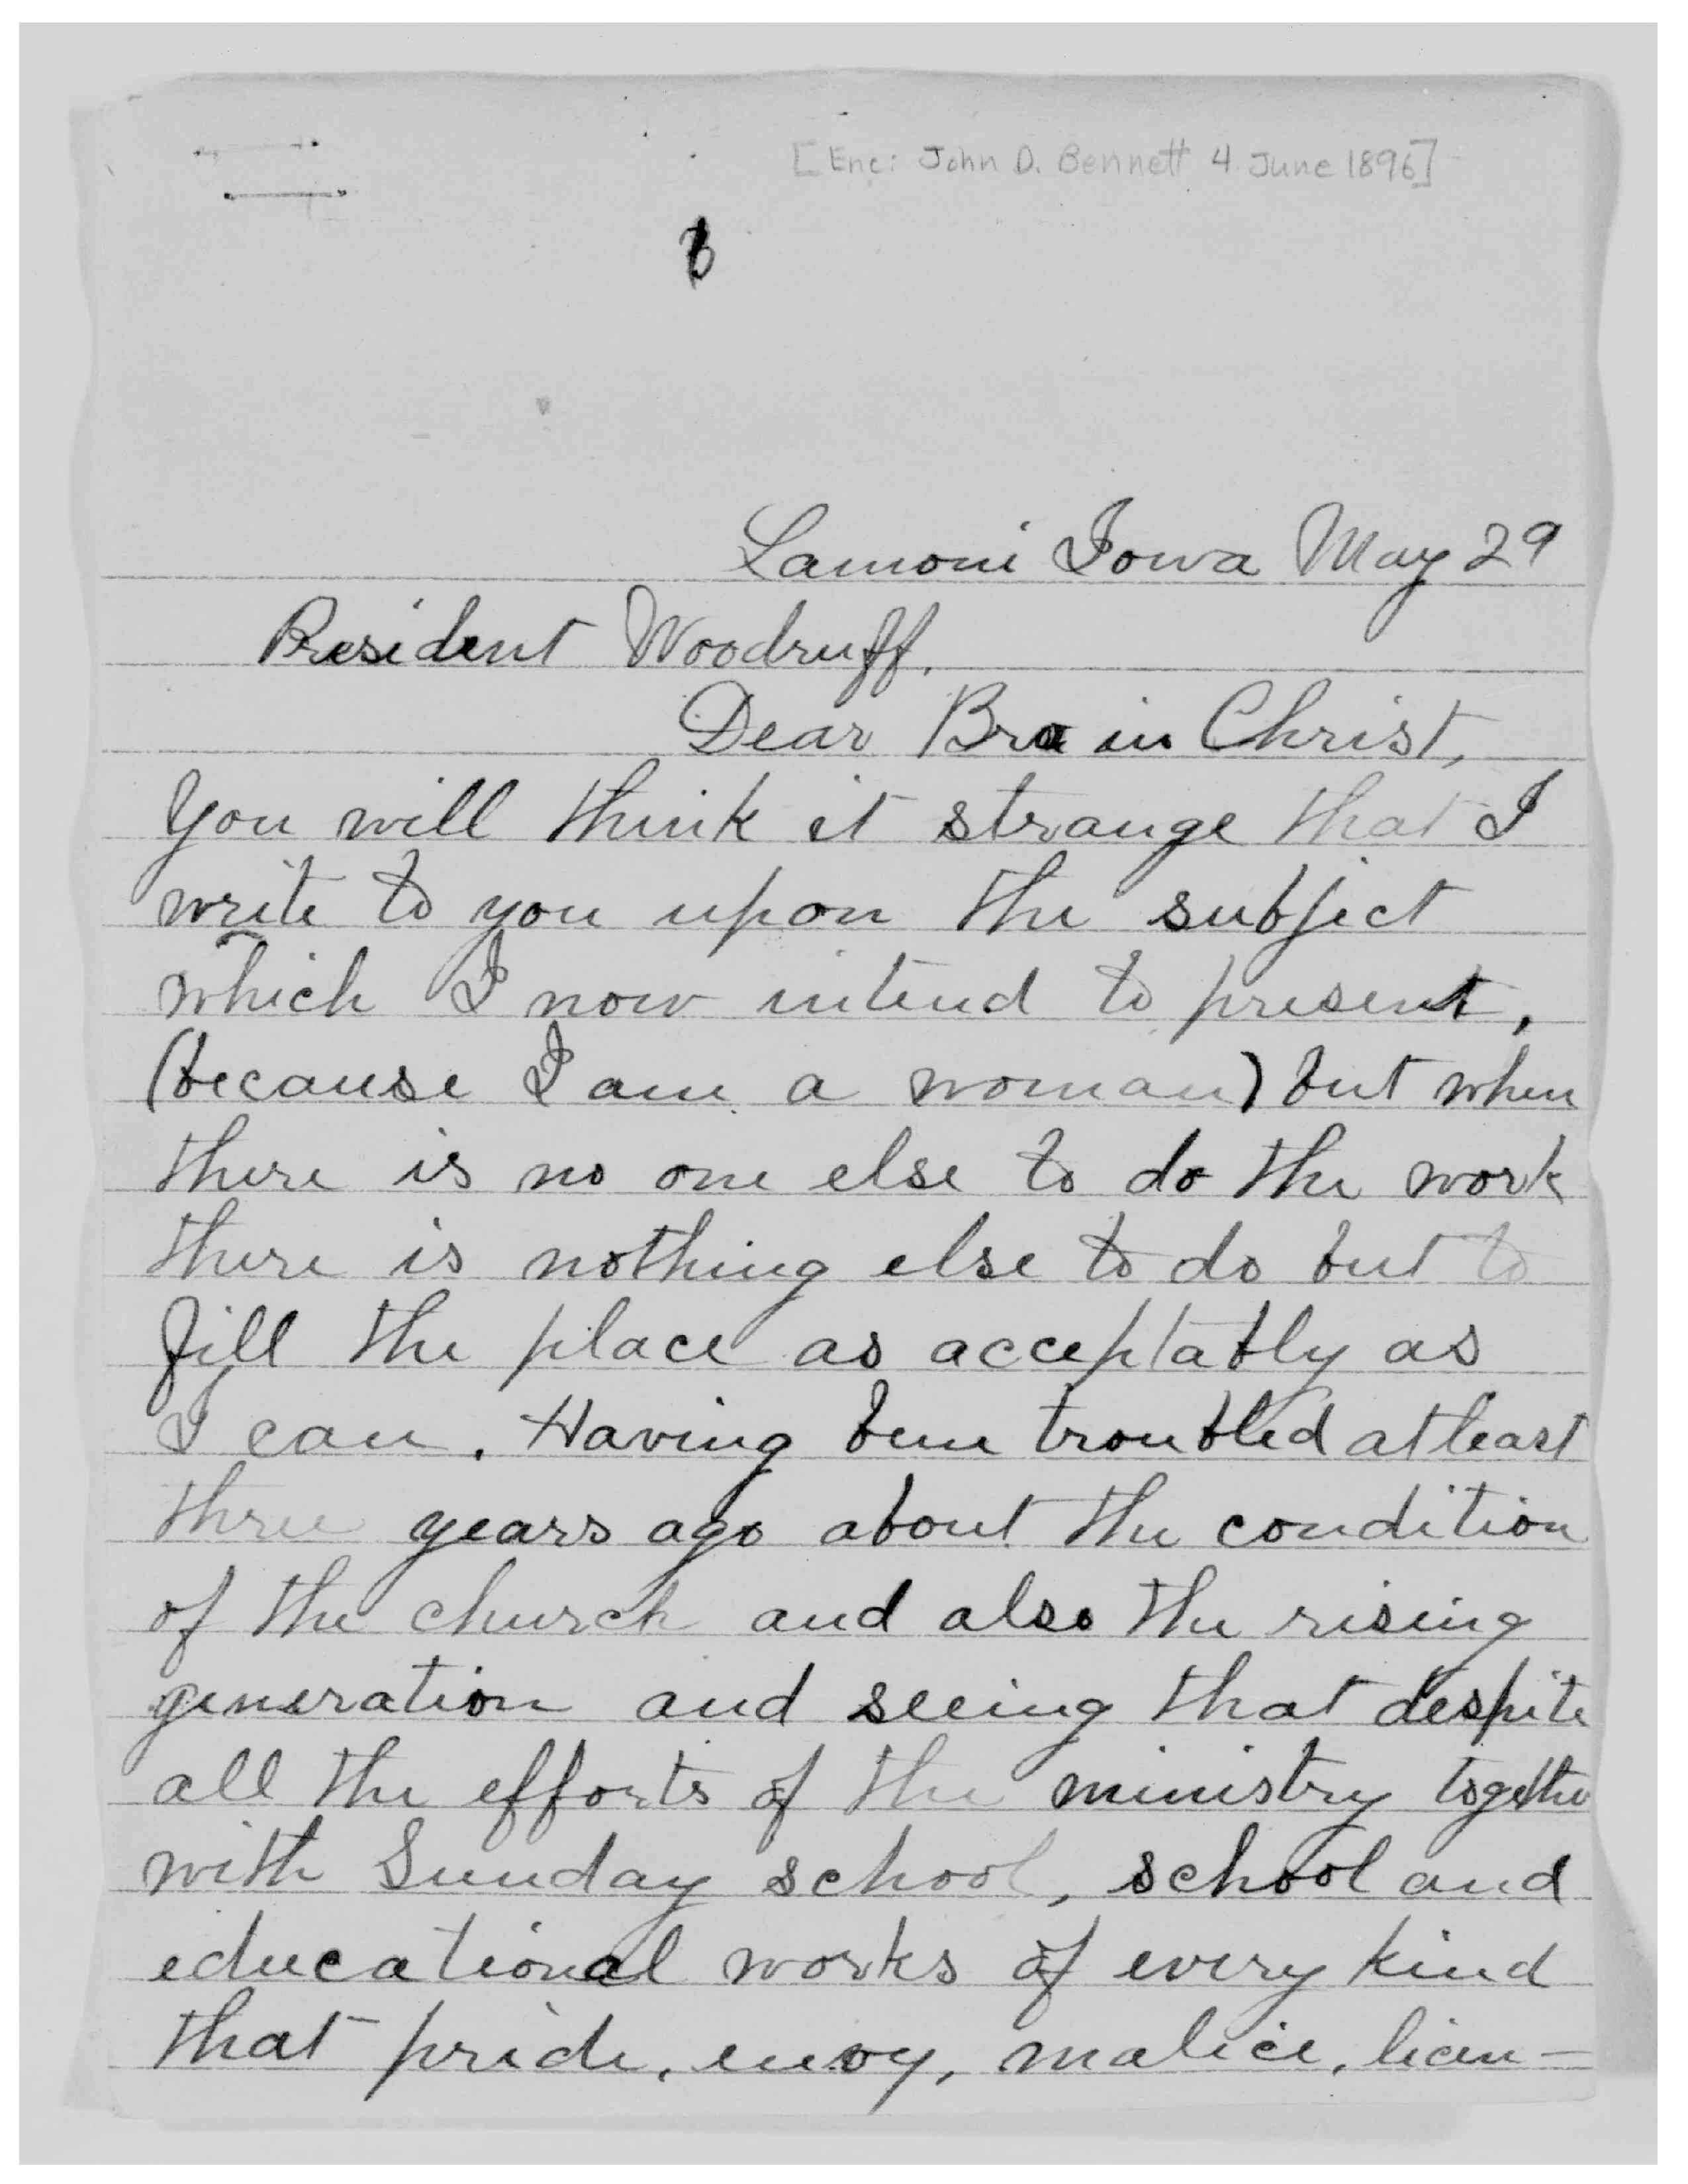 [Enc: John D. Bennett 4 June 1896]
Lamoni Iowa May 29
President Woodruff.
Dear Bro in Christ,
You will think it strange that I
write to you upon the subject
which I now intend to present,
(because I am a woman) but when
there is no one else to do the work
there is nothing else to do but to
fill the place as acceptably as
I can. Having been troubled at least
three years ago about the condition
of the church and also the rising
generation and seeing that despite
all the efforts of the ministry together
with Sunday school, school and
educational works of every kind
that pride, envy, malice, licen-